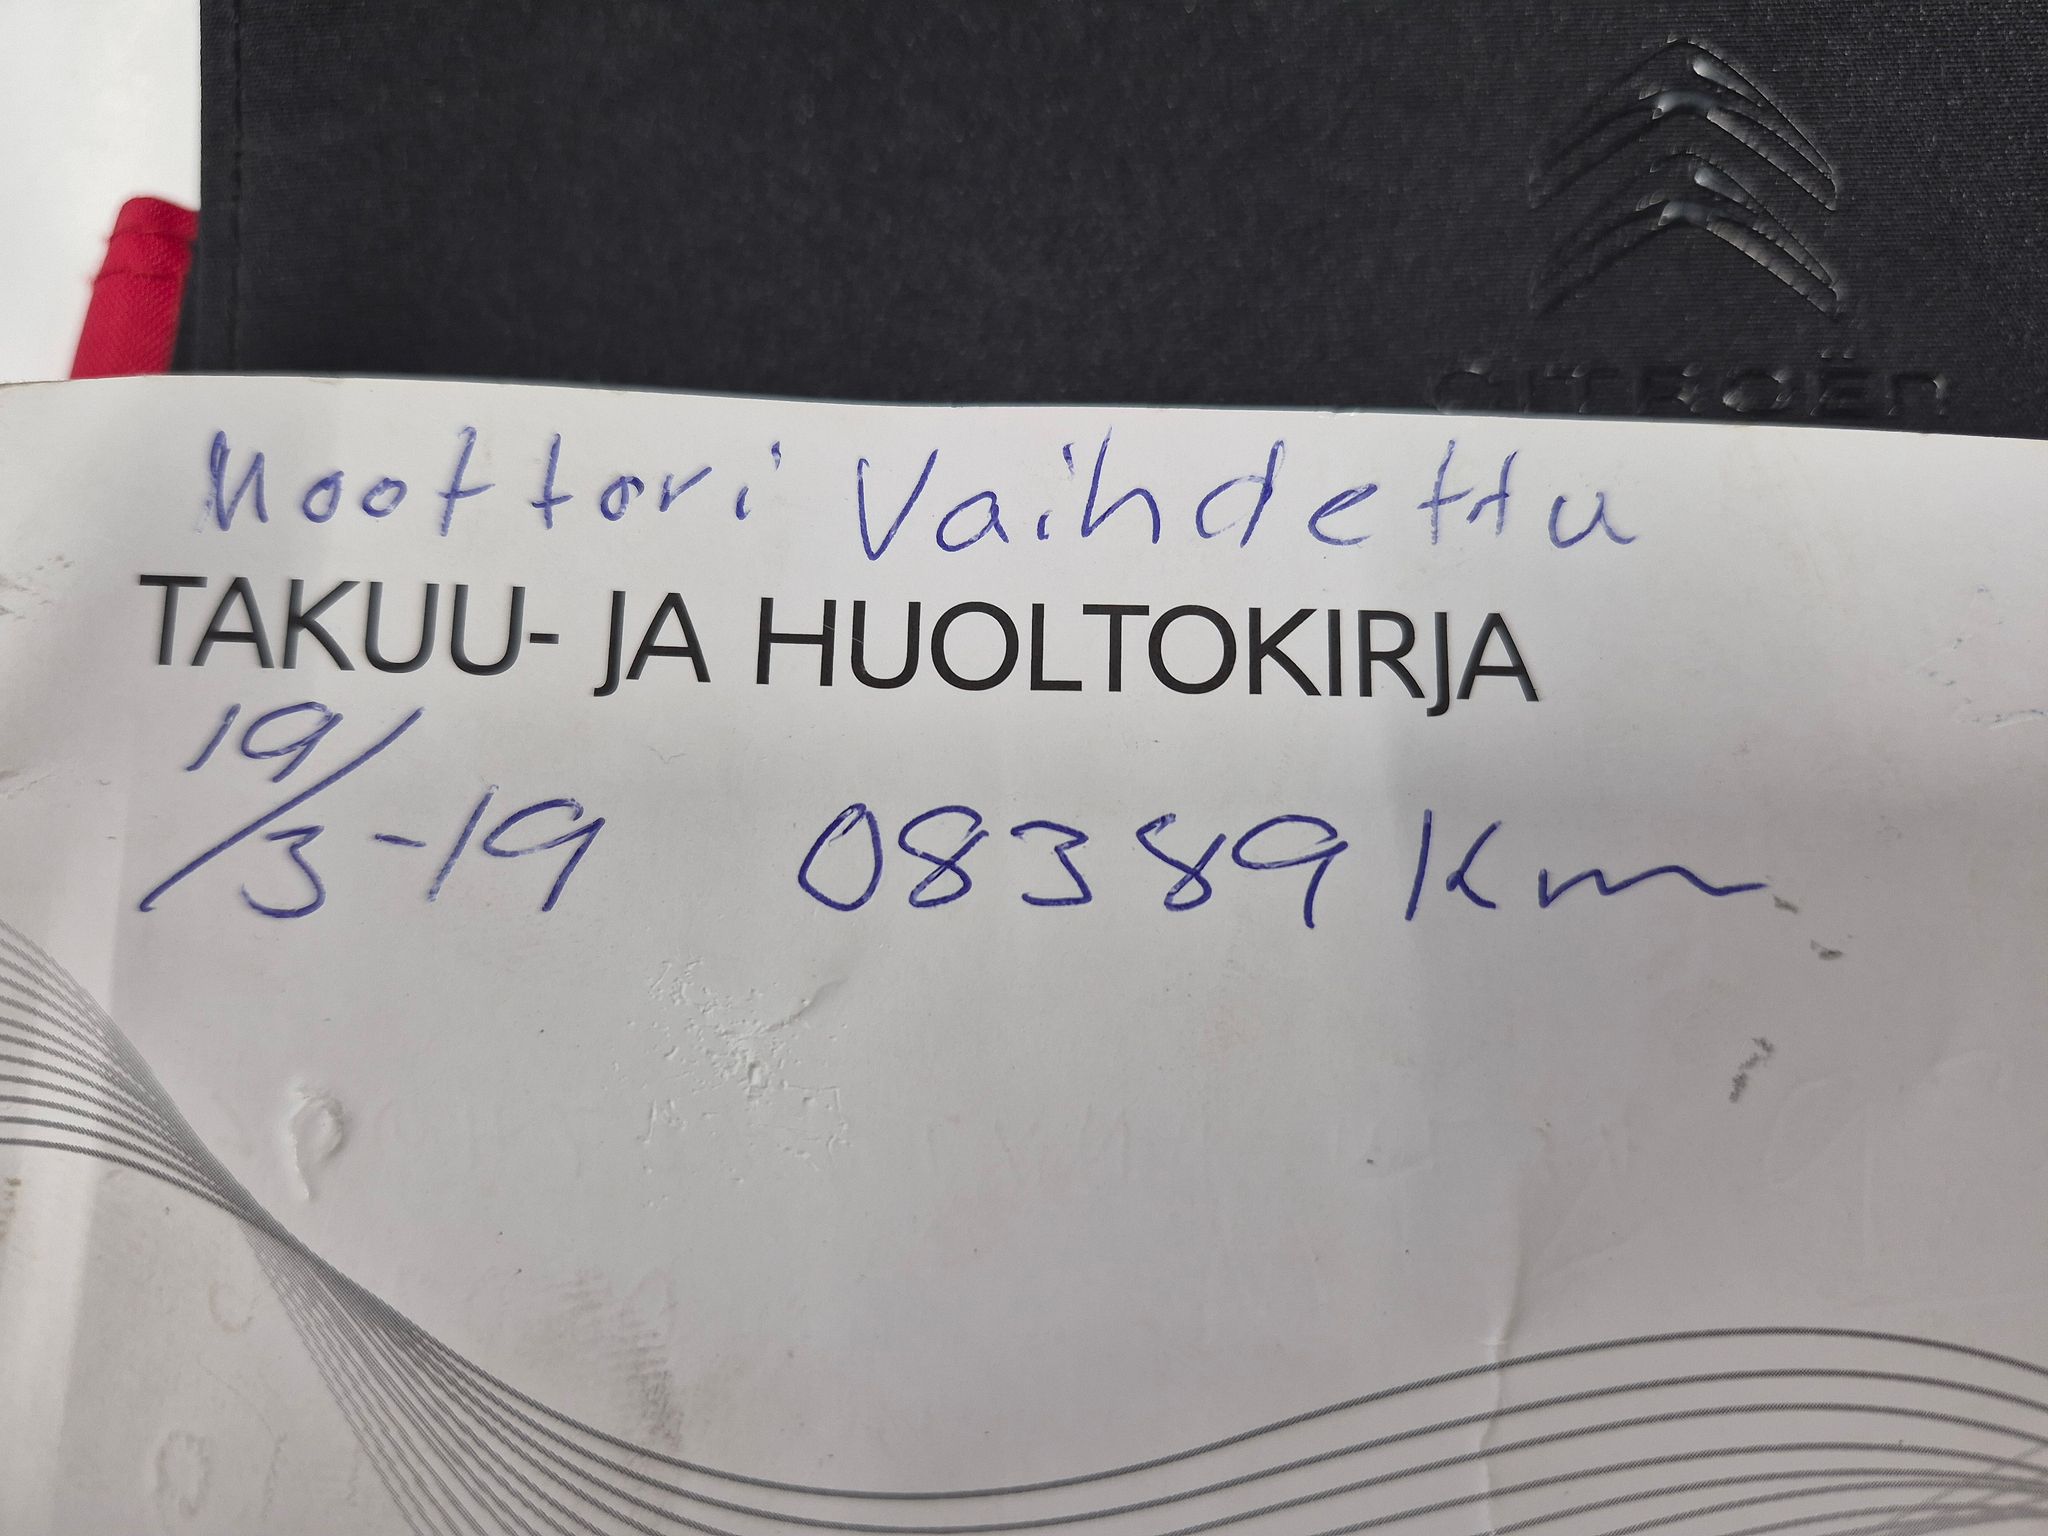 CITROËN
Moottori vaihdettu
TAKUU- JA HUOLTOKIRJA
19/3-19 08389 Km